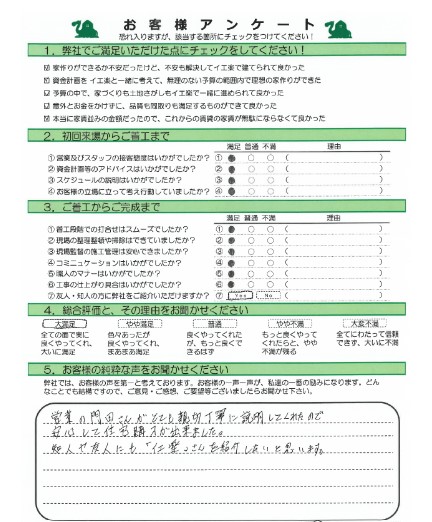 お客様アンケート
恐れ入りますが、該当する箇所にチェックをつけてください!
1.弊社でご満足いただけた点にチェックをしてください!
☑ 家作りができるか不安だったけど、不安も解決してイエ楽で建てられて良かった
☑ 資金計画を イエ楽と一緒に考えて、無理のない予算の範囲内で理想の家作りができた
☑ 予算の中で、家づくりも土地さがしもイエ楽で一緒に進められて良かった
☑ 意外とお金をかけずに、品質も間取りも満足するものができて良かった
☑ 本当に家賃並みの金額だったので、これからの賃貸の家賃が無駄にならなくて良かった
2.初回来場からご着工まで
満足 普通 不満 理由
①営業及びスタッフの接客態度はいかがでしたか? ① ● ○ ○ ( )
②資金計画等のアドバイスはいかがでしたか? ② ● ○ ○ ( )
③スケジュールの説明はいかがでしたか? ③ ● ○ ○ ( )
④お客様の立場に立って考え行動していましたか? ④ ● ○ ○ ( )
3.ご着工からご完成まで
満足 普通 不満 理由
①着工段階での打合せはスムーズでしたか? ① ● ○ ○ ( )
②現場の整理整頓や掃除はできていましたか? ② ● ○ ○ ( )
③現場監督の施工管理は安心できましたか? ③ ● ○ ○ ( )
④コミュニケーションはいかがでしたか? ④ ● ○ ○ ( )
⑤職人のマナーはいかがでしたか? ⑤ ● ○ ○ ( )
⑥工事の仕上がり具合はいかがでしたか? ⑥ ● ○ ○ ( )
⑦友人・知人の方に弊社をご紹介いただけますか? ⑦ Yes No
4.総合評価と、その理由をお聞かせください
大満足 やや満足 普通 やや不満 大変不満
全ての面で実に 色々あったが 良くやってくれた もっと良くやって 全てにわたって信頼
良くやってくれ、 良くやってくれ、 が、もっと良くで くれたらと、やや できず、大いに不満
大いに満足 まあまあ満足 きるはず 不満が残る
5.お客様の純粋な声をお聞かせください
弊社では、お客様の声を第一と考えております。お客様の一声一声が、私達の一番の励みになります。どん
なことでも結構ですので、ご意見・ご感想、ご要望等ございましたらお聞かせ下さい。
営業の門田さんがとても親切丁寧に説明してくれたので
安心して住宅購入が出来ました。
知人や友人にも「イエ楽」さんを紹介したいと思います。